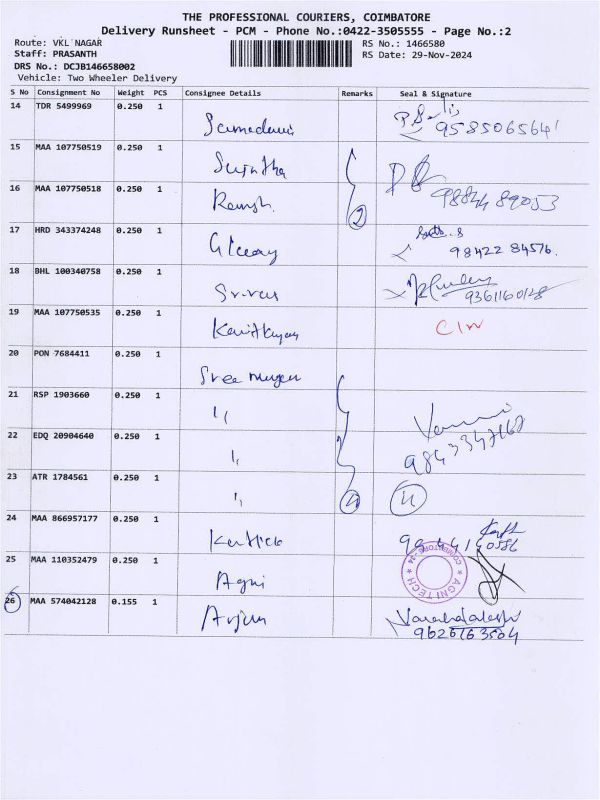 THE PROFESSIONAL COURIERS, COIMBATORE
Delivery Runsheet - PCM - Phone No.:0422-3505555 - Page No.:2
Route: VKL NAGAR RS No.: 1466580
Staff: PRASANTH RS Date: 29-Nov-2024
DRS No.: DCJB146658002
Vehicle: Two Wheeler Delivery
S No Consignment No Weight PCS Consignee Details Remarks Seal & Signature
14 TDR 5499969 0.250 1 9585065641
15 MAA 107750519 0.250 1 Sujntha
16 MAA 107750518 0.250 1 Ramesh. 2 98844 89053
17 HRD 343374248 0.250 1 98422 84576.
18 BHL 100340758 0.250 1 9361160128
19 MAA 107750535 0.250 1
20 PON 7684411 0.250 1 Sree Murugan
21 RSP 1903660 0.250 1 ,,
22 EDQ 20904640 0.250 1 ,, 9843347167
23 ATR 1784561 0.250 1 ,, 4 4
24 MAA 866957177 0.250 1 Karthick 9944140586
25 MAA 110352479 0.250 1 Agni AGNITECH
26 MAA 574042128 0.155 1 Arjun
9626163504